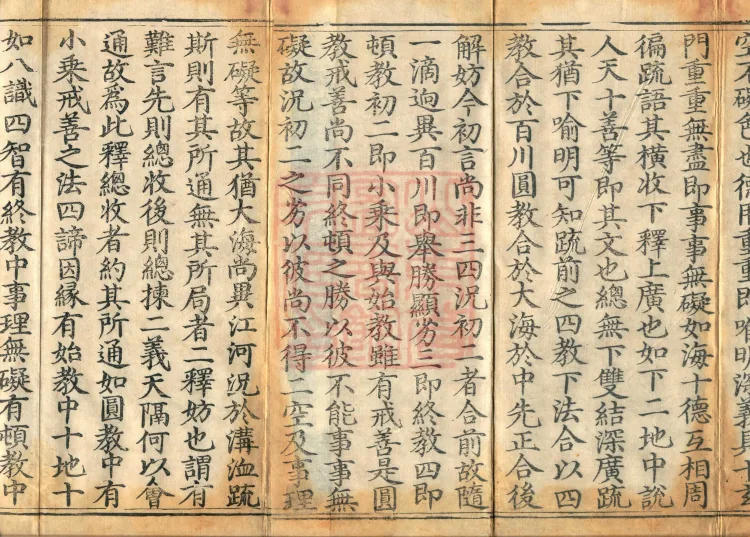 空不礙色也德用重重即喻明深義具十玄
門重重無盡即事事無礙如海十德互相周
徧疏語其橫收下釋上廣也如下二地中說
人天十善等即其文也總無下雙結深廣疏
其猶下喻明可知疏前之四教下法合以四
教合於百川圓教合於大海於中先正合後
解妨今初言尚非三四況初二者合前故隨
一滴逈異百川即舉勝顯劣三即終教四即
頓教初二即小乗及與始教雖有戒善是圓
教戒善尚不同終頓之勝以彼不能事事無
礙故況初二之劣以彼尚不得二空及事理
無礙等故其猶大海尚異江河況於溝洫疏
斯則有其所通無其所局者二釋妨也謂有
難言先則總收後則總揀二義天隔何以會
通故爲此釋總收者約其所通如圓教中有
小乗戒善之法四諦因縁有始教中十地十
如八識四智有終教中事理無礙有頓教中